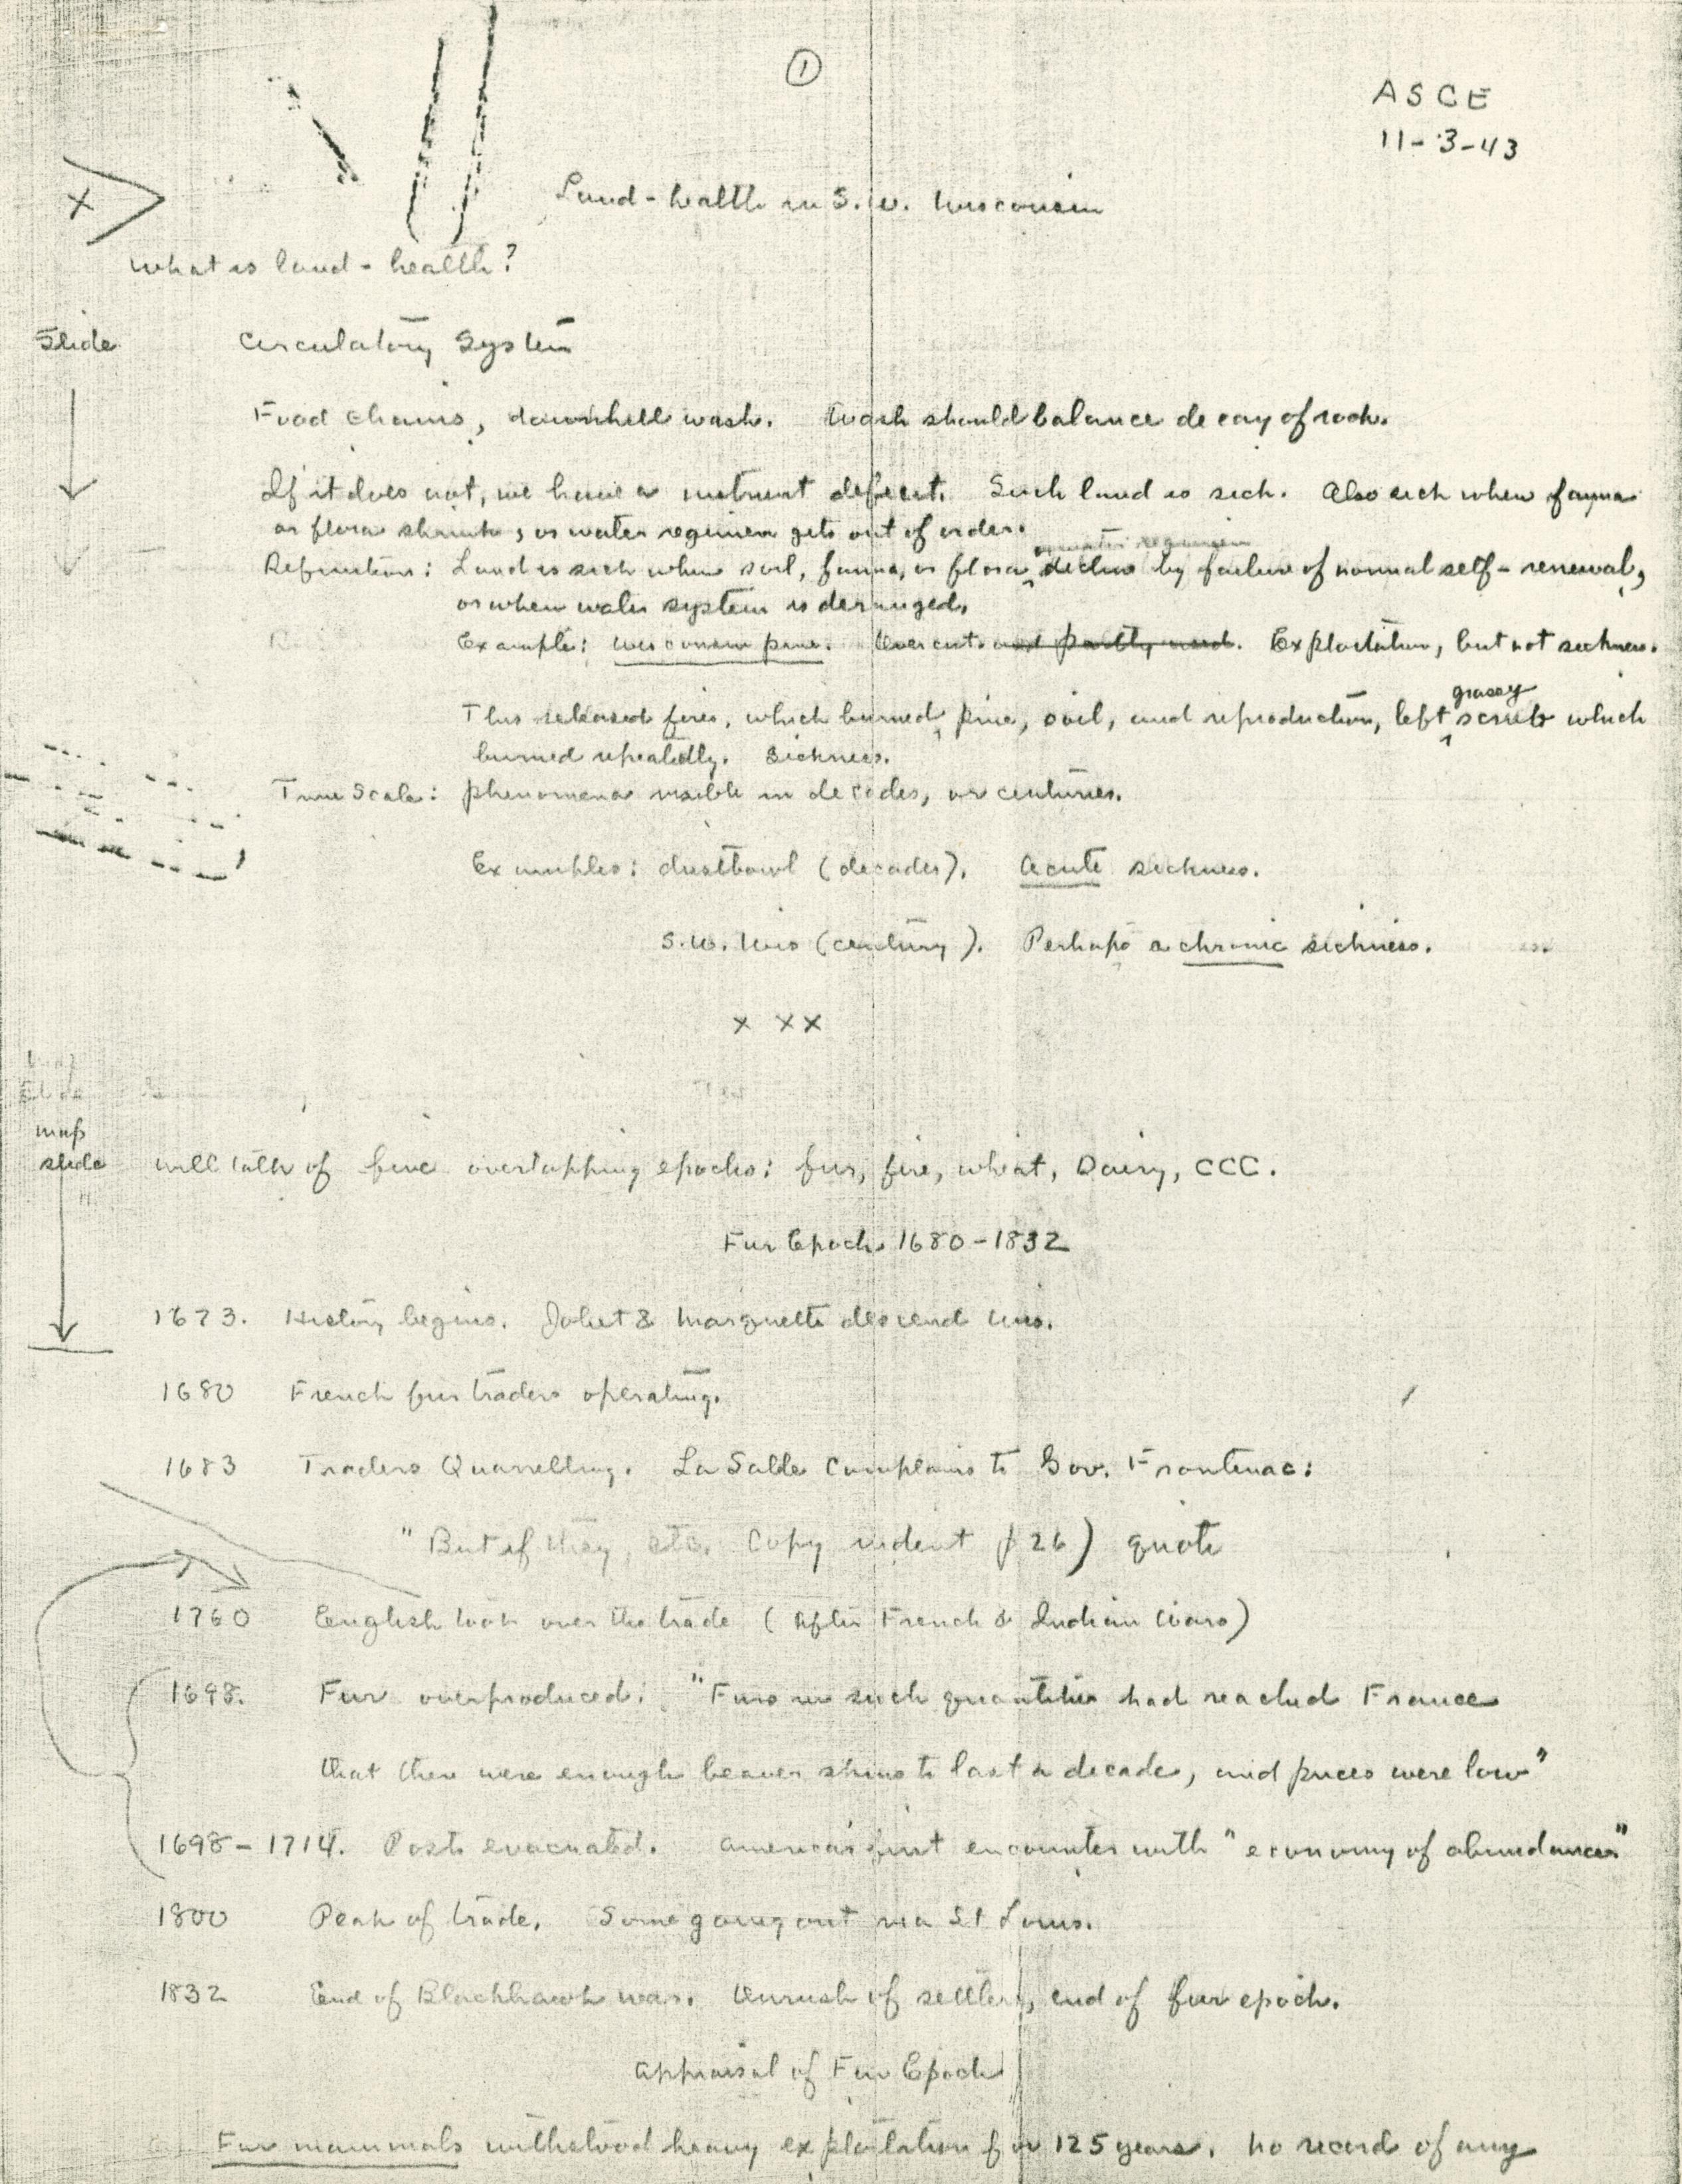 ①
ASCE
11-3-43
Land-health in S.W. Wisconsin
What is land-health?
Slide Circulatory System
Food chains, downhill wash. Wash should balance decay of rock.
If it does not, we have a nutrient deficit. Such land is sick. Also sick when fauna
or flora shrink, or water regimen gets out of order.
or water regimen
Definition: Land is sick when soil, fauna, or flora decline by failure of normal self-renewal,
or when water system is deranged.
Example: Wisconsin pine. Overcut and partly used. Exploitation, but not sickness.
grassy
This released fires, which burned pine, soil, and reproduction, left scrub which
burned repeatedly. Sickness.
Time Scale: phenomena visible in decades, or centuries.
Examples: dustbowl (decades). Acute sickness.
S.W. Wis (century). Perhaps a chronic sickness.
x xx
map
slide Will talk of five overlapping epochs: fur, fire, wheat, Dairy, CCC.
Fur Epoch 1680-1832
1673. History begins. Joliet & Marquette descend Wis.
1680 French fur traders operating.
1683 Traders Quarrelling. La Salle Complains to Gov. Frontenac:
"But if they, etc. Copy p 26) quote
1760 English took over the trade (After French & Indian Wars)
1698. Fur overproduced: "Furs in such quantities had reached France
that there were enough beaver skins to last a decade, and prices were low"
1698-1714. Posts evacuated. America's first encounter with "economy of abundance"
1800 Peak of trade. Some going out via St Louis.
1832 End of Blackhawk war. Onrush of settlers, end of fur epoch.
Appraisal of Fur Epoch
Fur mammals withstood heavy exploitation for 125 years. No record of any